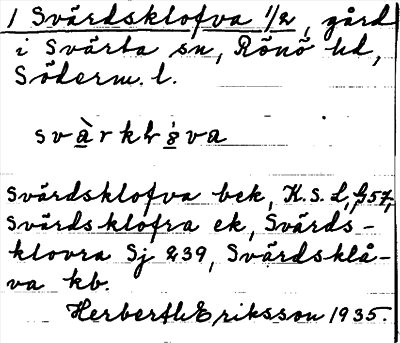 1 Svärdsklofva 1/2, gård
i Svärta sn, Rönö hd,
Söderm. l.
svàrklɤ̀va
Svärdsklofva bek, K.S.L, G57,
Svärdsklofra ek, Svärds-
klovra Sj 239, Svärdsklå-
va kb.
Herberth Eriksson 1935.